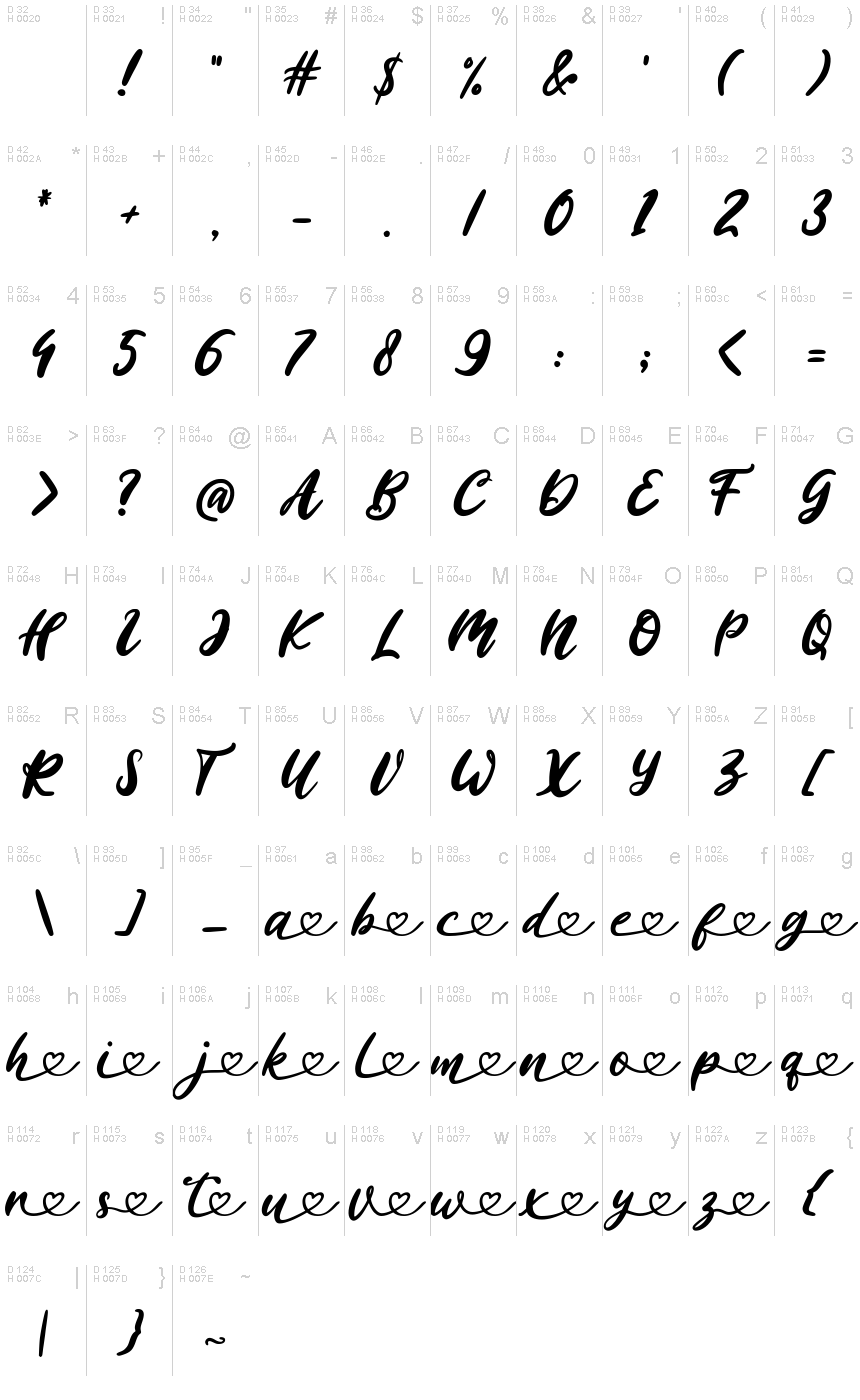 D 32 H 0020 D 33 H 0021 ! D 34 H 0022 " D 35 H 0023 # D 36 H 0024 $ D 37 H 0025 % D 38 H 0026 & D 39 H 0027 ' D 40 H 0028 ( D 41 H 0029 )
! " # $ % & ' ( )
D 42 H 002A * D 43 H 002B + D 44 H 002C , D 45 H 002D - D 46 H 002E . D 47 H 002F / D 48 H 0030 0 D 49 H 0031 1 D 50 H 0032 2 D 51 H 0033 3
* + , - . / 0 1 2 3
D 52 H 0034 4 D 53 H 0035 5 D 54 H 0036 6 D 55 H 0037 7 D 56 H 0038 8 D 57 H 0039 9 D 58 H 003A : D 59 H 003B ; D 60 H 003C < D 61 H 003D =
4 5 6 7 8 9 : ; < =
D 62 H 003E > D 63 H 003F ? D 64 H 0040 @ D 65 H 0041 A D 66 H 0042 B D 67 H 0043 C D 68 H 0044 D D 69 H 0045 E D 70 H 0046 F D 71 H 0047 G
> ? @ A B C D E F G
D 72 H 0048 H D 73 H 0049 I D 74 H 004A J D 75 H 004B K D 76 H 004C L D 77 H 004D M D 78 H 004E N D 79 H 004F O D 80 H 0050 P D 81 H 0051 Q
H I J K L M N O P Q
D 82 H 0052 R D 83 H 0053 S D 84 H 0054 T D 85 H 0055 U D 86 H 0056 V D 87 H 0057 W D 88 H 0058 X D 89 H 0059 Y D 90 H 005A Z D 91 H 005B [
R S T U V W X Y Z [
D 92 H 005C \ D 93 H 005D ] D 95 H 005F _ D 97 H 0061 a D 98 H 0062 b D 99 H 0063 c D 100 H 0064 d D 101 H 0065 e D 102 H 0066 f D 103 H 0067 g
\ ] _ a b c d e f g
D 104 H 0068 h D 105 H 0069 i D 106 H 006A j D 107 H 006B k D 108 H 006C l D 109 H 006D m D 110 H 006E n D 111 H 006F o D 112 H 0070 p D 113 H 0071 q
h i j k l m n o p q
D 114 H 0072 r D 115 H 0073 s D 116 H 0074 t D 117 H 0075 u D 118 H 0076 v D 119 H 0077 w D 120 H 0078 x D 121 H 0079 y D 122 H 007A z D 123 H 007B {
r s t u v w x y z {
D 124 H 007C | D 125 H 007D } D 126 H 007E ~
| } ~